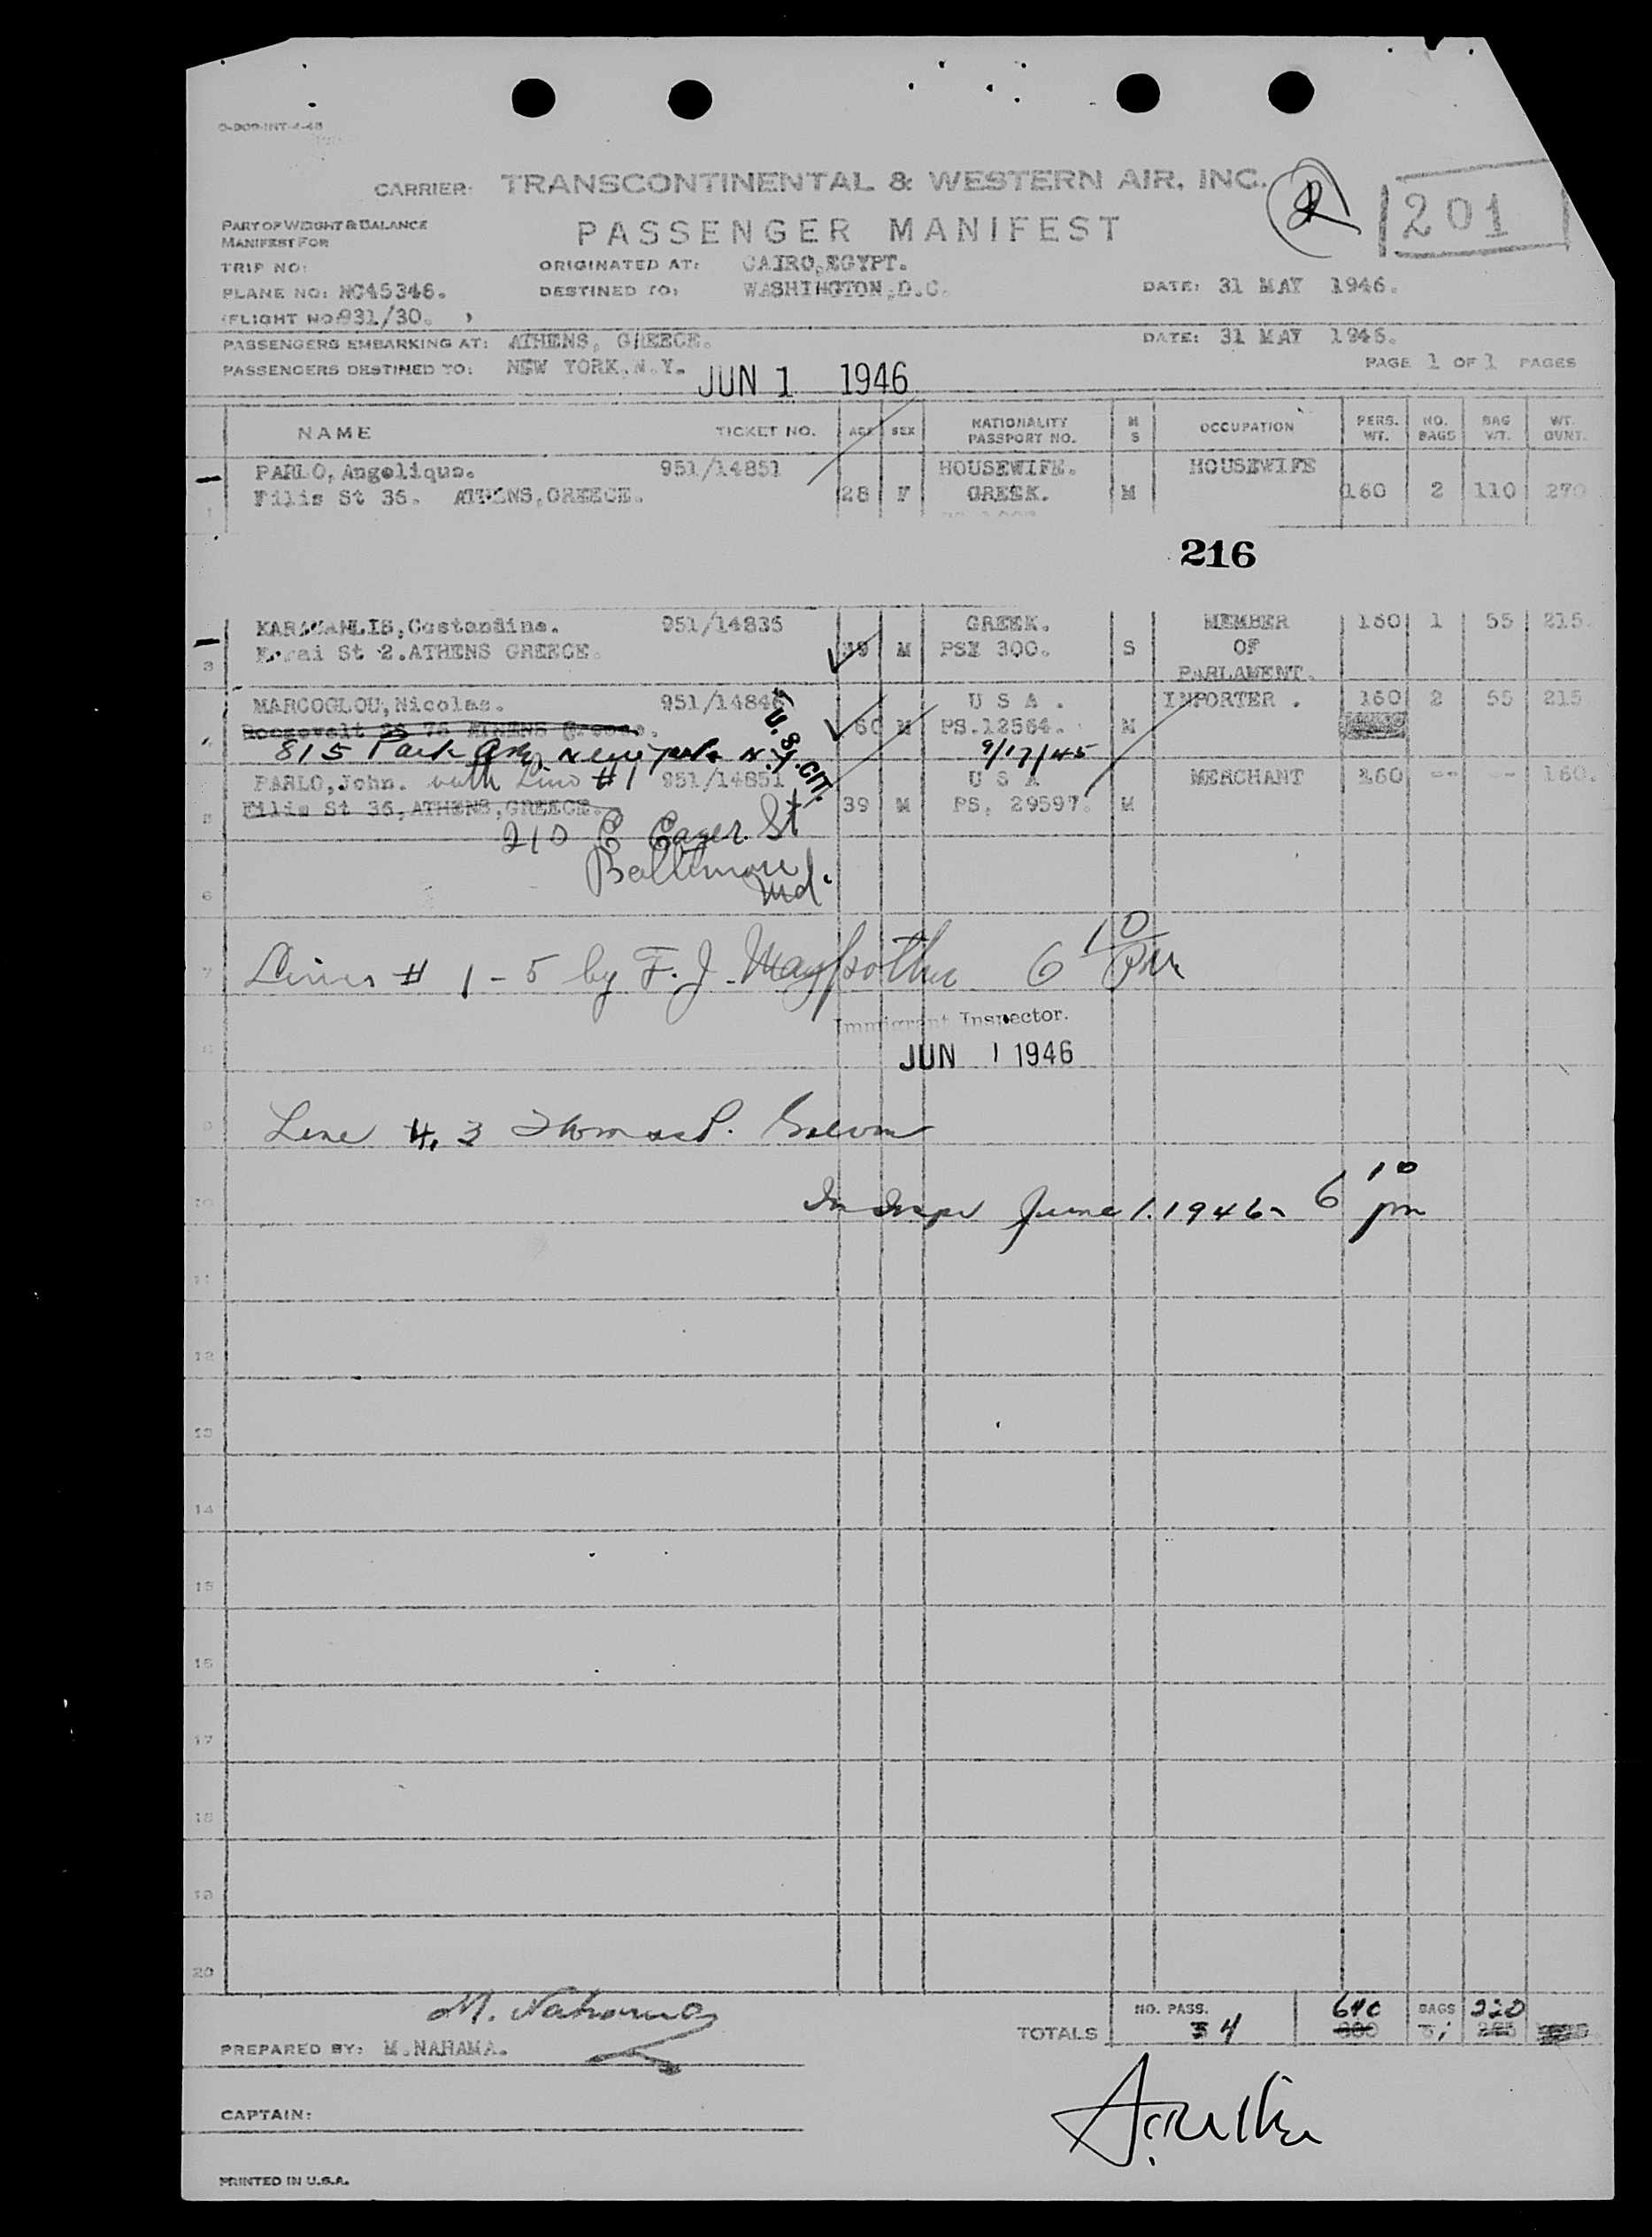 CARRIER: TRANSCONTINENTAL & WESTERN AIR, INC.
2
201
PART OF WEIGHT & BALANCE
MANIFEST FOR
PASSENGER MANIFEST
TRIP NO:
ORIGINATED AT: CAIRO, EGYPT.
PLANE NO: NC45346. DESTINED TO: WASHINGTON, D.C. DATE: 31 MAY 1946.
(FLIGHT NO: 931/30. )
PASSENGERS EMBARKING AT: ATHENS, GREECE. DATE: 31 MAY 1946.
PASSENGERS DESTINED TO: NEW YORK.N.Y. JUN 1 1946 PAGE 1 OF 1 PAGES
NAME TICKET NO. AGE SEX NATIONALITY PASSPORT NO. M S OCCUPATION PERS. WT. NO. BAGS BAG WT. WT. OVNT.
PARLO, Angelique. 951/14851 HOUSEWIFE. HOUSEWIFE
1 Filis St 36. ATHENS, GREECE. 28 F GREEK. M 160 2 110 270
216
KARAMANLIS, Costandine. 951/14835 GREEK. MEMBER 160 1 55 215.
3 St 2. ATHENS GREECE. 39 M PSX 300. S OF
PARLAMENT.
MARCOGLOU, Nicolas. 951/14846 U S A . IMPORTER . 160 2 55 215
4 Roosevelt 75 ATHENS Greece. 60 M PS.12564. M
U.S. CIT.
815 Park Ave, New York N.Y. 9/17/45
PARLO, John. with Line #1 951/14851 U S A MERCHANT 160 -- -- 160.
5 Filis St 36, ATHENS, GREECE. 39 M PS. 29597. M
210 E Eager St
Baltimore
6 Md.
7 Lines # 1-5 by F. J. 6 10 PM
Immigrant Inspector.
8 JUN 1 1946
9 Line #. 3 Thomas P.
10 Im Inspr June 1. 1946 - 6 10 pm
11
12
13
14
15
16
17
18
19
20
M. Nahama
TOTALS NO. PASS. 4 640 BAGS 220
PREPARED BY: M.NAHAMA.
CAPTAIN:
PRINTED IN U.S.A.